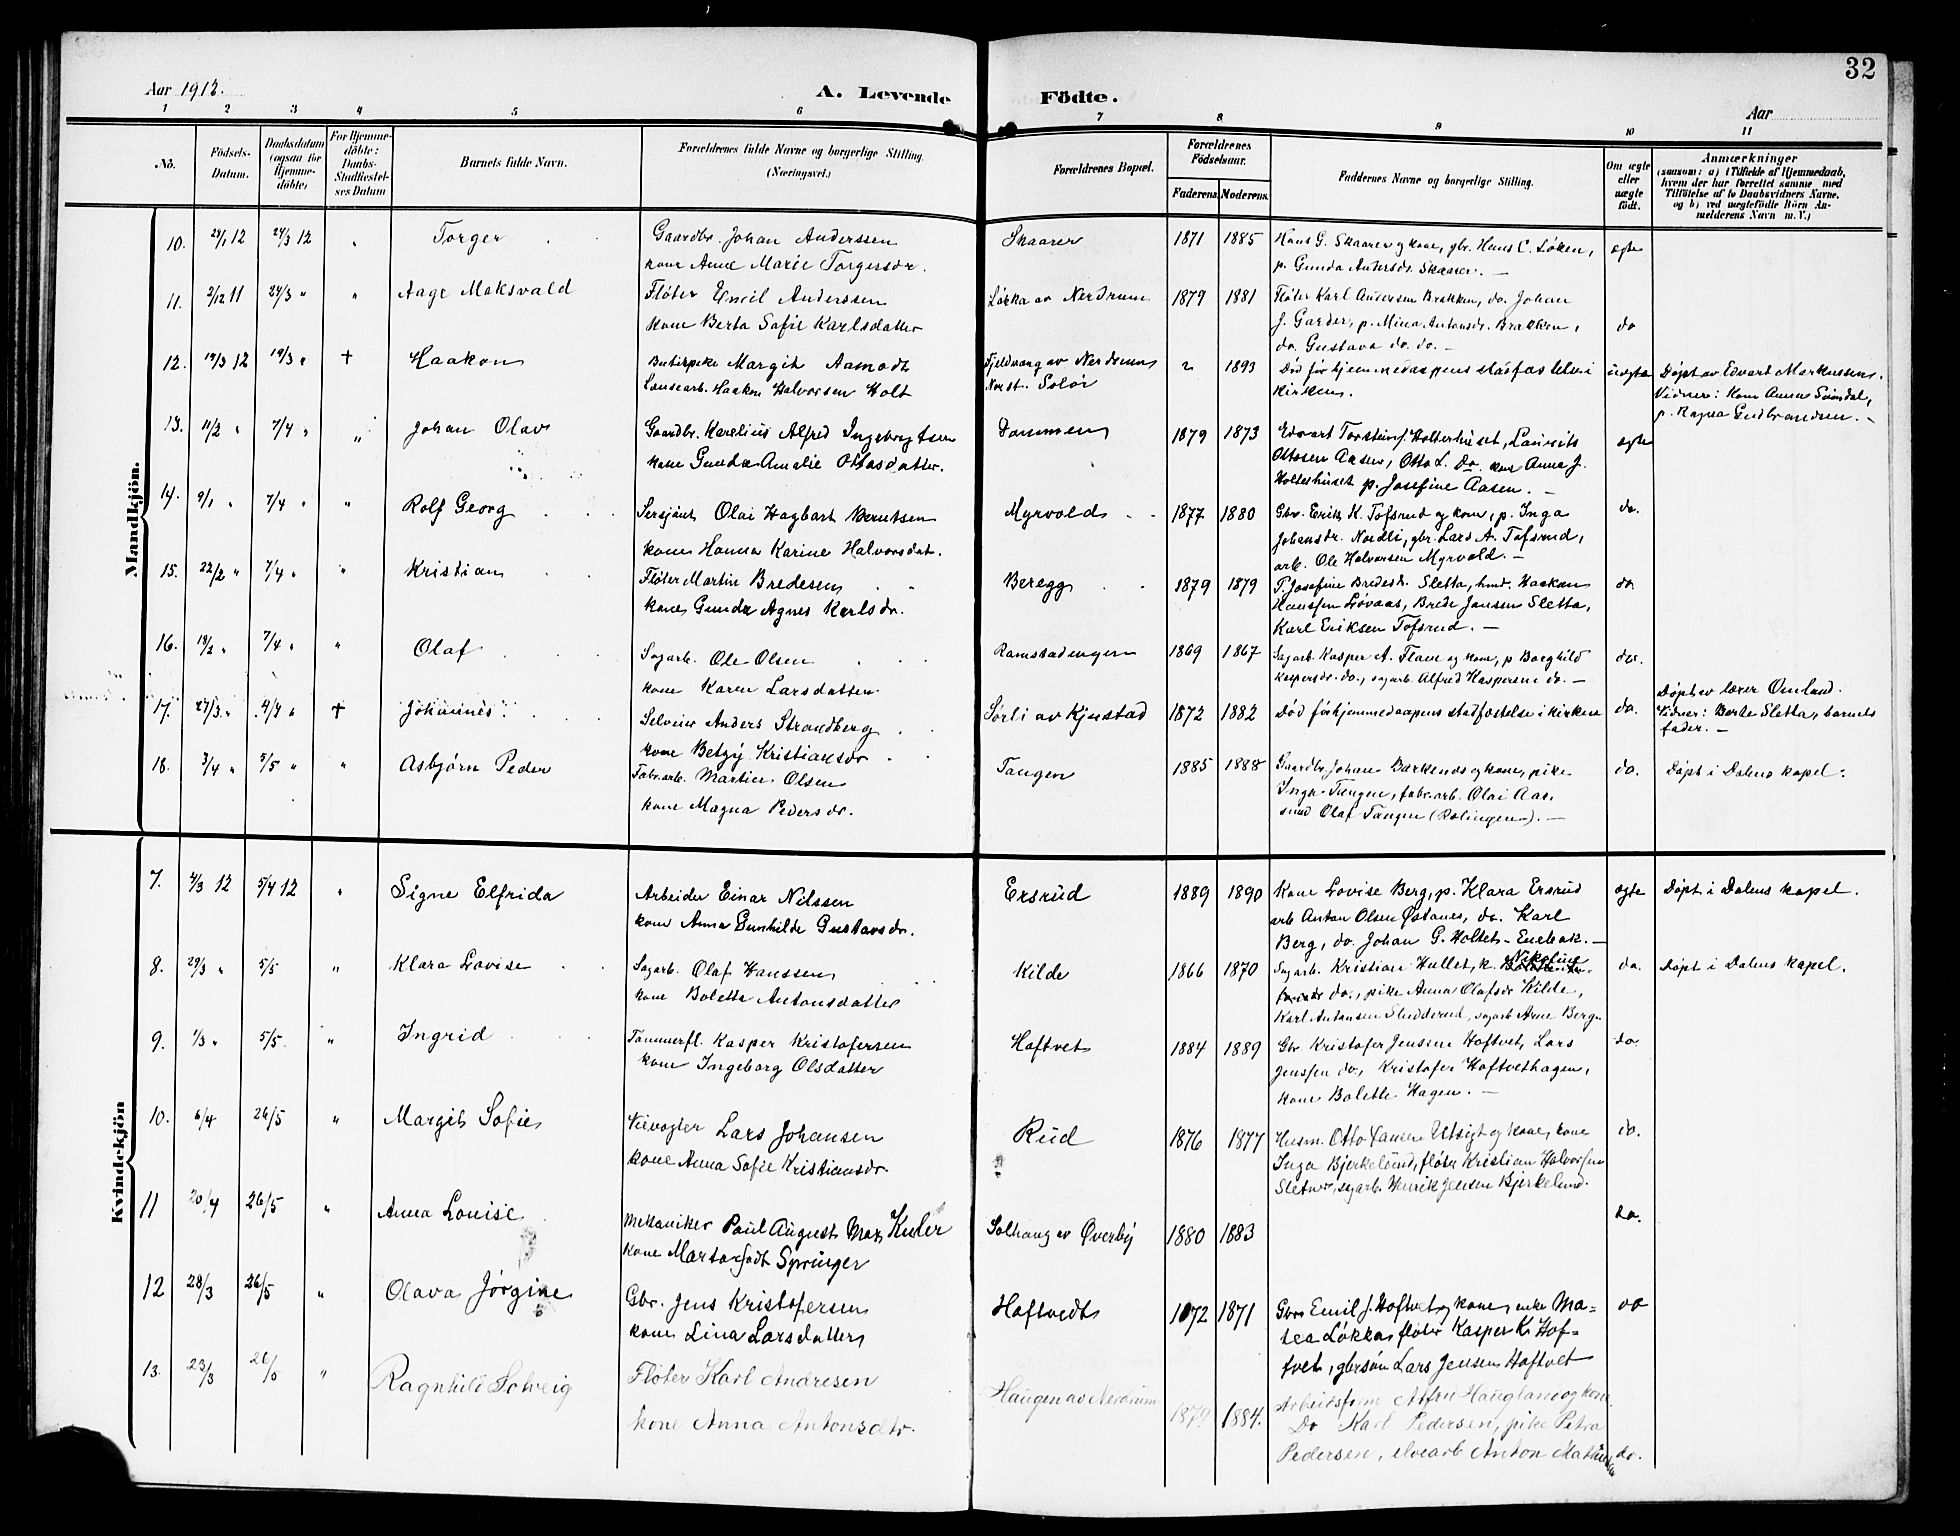 32
Aar 1912.
A. Levende Födte.
Aar
1 2 3 4 5 6 7 8 9 10 11
No.
Födsels-Datum.
Daabsdatum (ogsaa for Hjemmedöbte)
For Hjemmedöbte: Daabs-Stadfæstelses Datum
Barnets fulde Navn.
Forældrenes fulde Navne og borgerlige Stilling. (Næringsvei.)
Forældrenes Bopæl.
Forældrenes Födselsaar.
Faderens. Moderens.
Faddernes Navne og borgerlige Stilling.
Om ægte eller uægte födt.
Anmærkninger
(saasom: a) i Tilfælde af Hjemmedaab,
hvem der har forrettet samme med
Tilföielse af to Daabsvidners Navne,
og b) ved uægtefödte Börn Anmelderens Navn m. V.)
Mandkjön.
10. 24/3 12 " Torger
Gaardbr. Johan Anderssen
kone Anne Marie Torgersdr.
Skaarer 1871 1885
Hans G. Skaarer og kone, gbr. Hans C. Løken,
p. Gunda Andersdr. Skaarer. —
ægte
11. 2/12 11 24/3 " " Aage Moksvald
Fløter Emil Anderssen
kone Berta Sofie Karlsdatter
Løkka av Nerdrum 1879 1881
Fløter Karl Andersen Brakken, do. Johan
J. Garder, p. Mina Antonsdr. Brakken,
do. Gustava do. do. —
do
12. 19/3 12 19/3 " + Haakon
Butikpike Margit Aamodt
Løusearb. Haakon Halvorsen Holt
Fjeldvang av Nerdrum
Nerst. Solør
" 1893
Død før hjemmedaapens stadfæstelse i
kirken.
uægte
Døpt av Edvart Markussen.
Vidner: Kone Anna Svindal,
p. Ragna Gudbrandsen. —
13. 11/2 " 7/4 " " Johan Olav
Gaardbr. Karelius Alfred Ingebregtsen
kone Gunda Amalie Ottosdatter.
Dammen 1879 1873
Edvart Torstens. Holterhuset, Laurits
Ottosen Aasen, Otto L. do. kone Anna J.
Holterhuset p. Josefine Aasen. —
ægte
14. 9/1 " 7/4 " " Rolf Georg
Sersjant Olai Hagbart Berntsen
kone Hanna Karine Halvorsdat.
Myrvold 1877 1880
Gbr. Erik K. Tofsrud og kone, p. Inga
Johansdr. Nordli, gbr. Lars A. Tofsrud,
arb. Ole Halvorsen Myrvold. —
do.
15. 22/2 " 7/4 " " Kristian
Fløter Martin Bredesen
kone Gunda Agnes Karlsdr.
Beregg 1879 1879
P. Josefine Bredesdr. Sletta, hmd. Haakon
Hanssen Løvaas, Brede Jansen Sletta,
Karl Eriksen Tofsrud. —
do.
16. 19/2 " 7/4 " " Olaf
Sagarb. Ole Olsen
kone Karen Larsdatter
Ramstadengen 1869 1867
Sagarb. Kasper A. Flaen og kone, p Borghild
Kaspersdr. do., sagarb. Alfred Kaspersen do. —
do.
17. 27/3 " 4/4 " + Johannes
Selveier Anders Strandberg
kone Betzy Kristiansdr
Sørli av Kjustad 1872 1882
Død før hjemmedaapens stadfæstelse i kirken
do.
Døpt av lærer Omland.
Vidner: Berte Sletta, barnets
fader. —
18. 3/4 " 5/5 " " Asbjørn Peder
Fabr.arb. Martin Olsen
kone Magna Pedersdr.
Tangen 1885 1888
Gaardbr. Johan Barkenæs og kone, pike
Inga Tangen, fabr.arb. Olai Aasmud
Olaf Tangen (Rælingen). —
do.
Døpt i Dalens kapel.
Kvindekjön
7. 4/3 12 5/4 12 " Signe Elfrida
Arbeider Einar Nilssen
kone Anna Gunhilde Gustavsdr.
Ersrud 1889 1890
Kone Lovise Berg, p. Klara Ersrud
arb Anton Olsen Østanes, do. Karl
Berg, do. Johan G. Holtet - Enebak. —
ægte
Døpt i Dalens kapel.
8. 29/3 " 5/5 " Klara Lovise
Sagarb. Olaf Hanssen
kone Bolette Antonsdatter
Kilde 1866 1870
Sagarb. Kristian Hullet, k. Nikoline
do., pike Anna Olafsdr Kilde,
Karl Antonsen Sludderud, sagarb Arne Berg.
do.
Døpt i Dalens kapel.
9. 1/3 " 5/5 " Ingrid
Tømmerfl. Kasper Kristofersen
kone Ingeborg Olsdatter
Hoftvet 1884 1889
Gbr. Kristofer Jensen Hoftvet, Lars
Jenssen do, Kristofer Hoftvethagen,
kone Bolette Hagen. —
do.
10. 6/4 26/5 " Margit Sofie
Veivogter Lars Johansen
kone Anna Sofie Kristiansdr.
Rud 1876 1877
Husm. Otto Hansen Utsigt og kone, kone
Inga Bjerkelund, fløter Kristian Halvorsen
Sletner, sagarb. Henrik Jensen Bjerkelund.
do.
11 20/4 26/5 " Anna Louise
Mekaniker Paul August Max Kuler
kone Marta født Springer
Solhaug av Øverby 1880 1883
do.
12 28/3 26/5 " Olava Jørgine
Gbr. Jens Kristofersen
kone Lina Larsdatter
Hoftvedt 1872 1871
Gbr. Emil J. Hoftvet og kone, enke Ma=
tea Løkka, fløter Kasper K. Hof=
tvet, gbrsøn Lars Jensen Hoftvet
do
13. 23/3 26/5 " Ragnhild Solveig
Fløter Karl Andresen
kone Anna Antonsdtr.
Haugen av Nerdrum 1879 1884.
Arbeidsform. Alfred Haugland og kone
Do Karl Pedersen, pike Petra
Pedersen, elvearb Anton Mathiesen
do.